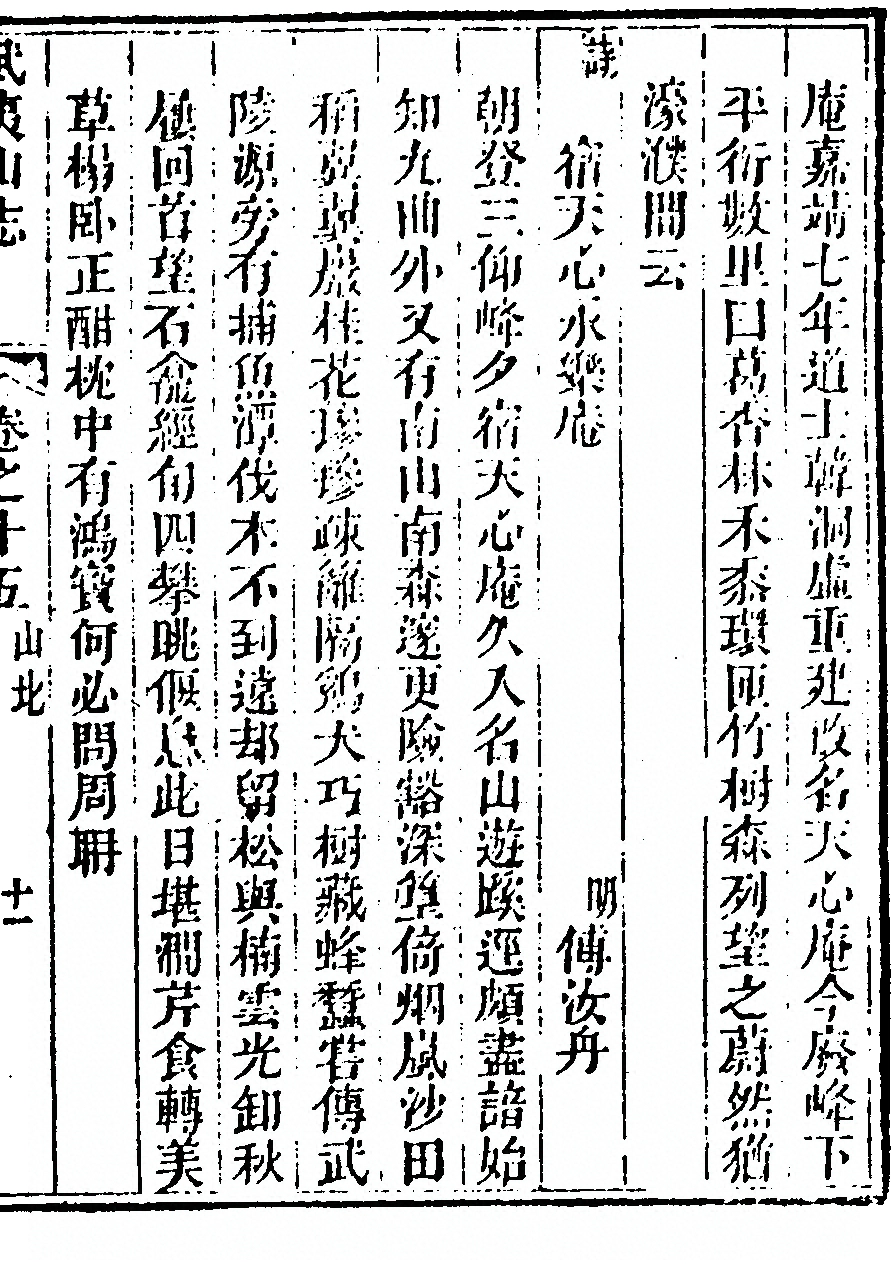 庵嘉靖七年道士韓洞虛重建改名天心庵今廢峰下
平衍數里曰葛杏林禾黍環匝竹樹森列望之蔚然猶
濠濮間云
詩
宿天心永樂庵 明 傅汝舟
朝登三仰峰夕宿天心庵久入名山遊蹊逕頗盡諳始
知九曲外又有南山南森邃更險豁深篁倚烟嵐沙田
稻㔟㔟巖桂花毿毿疎籬隔鷄犬巧樹藏蜂蠶昔傳武
陵源旁有捕魚潭伐木不到遠却留松與楠雲光卸秋
𡽱回首望石龕經旬四攀眺偃息此日堪澗芹食轉美
草榻卧正酣枕中有鴻寶何必問周聃
武夷山志 卷之十五 山北 十一